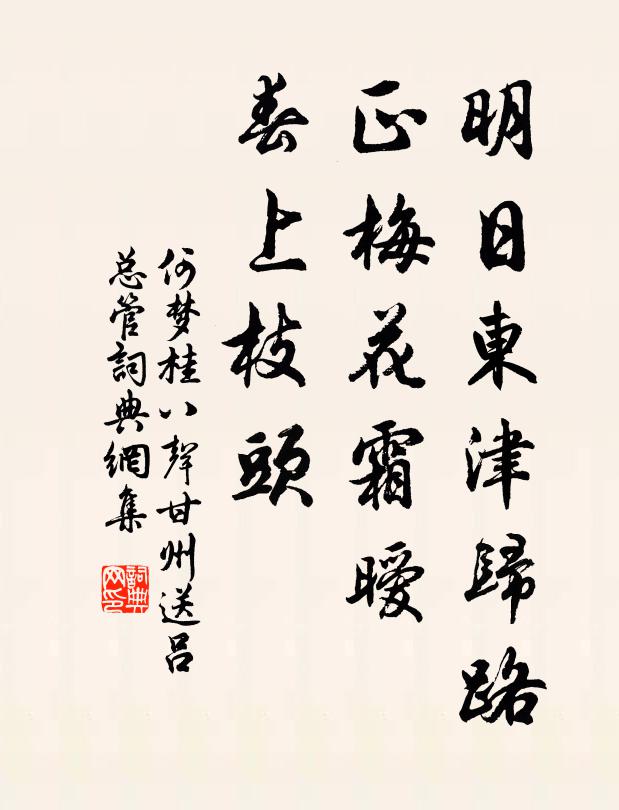 明日東津歸路
正梅花霜曖
春上枝頭
何梦桂八聲甘州送呂
总管詞典網集
詞典
网印